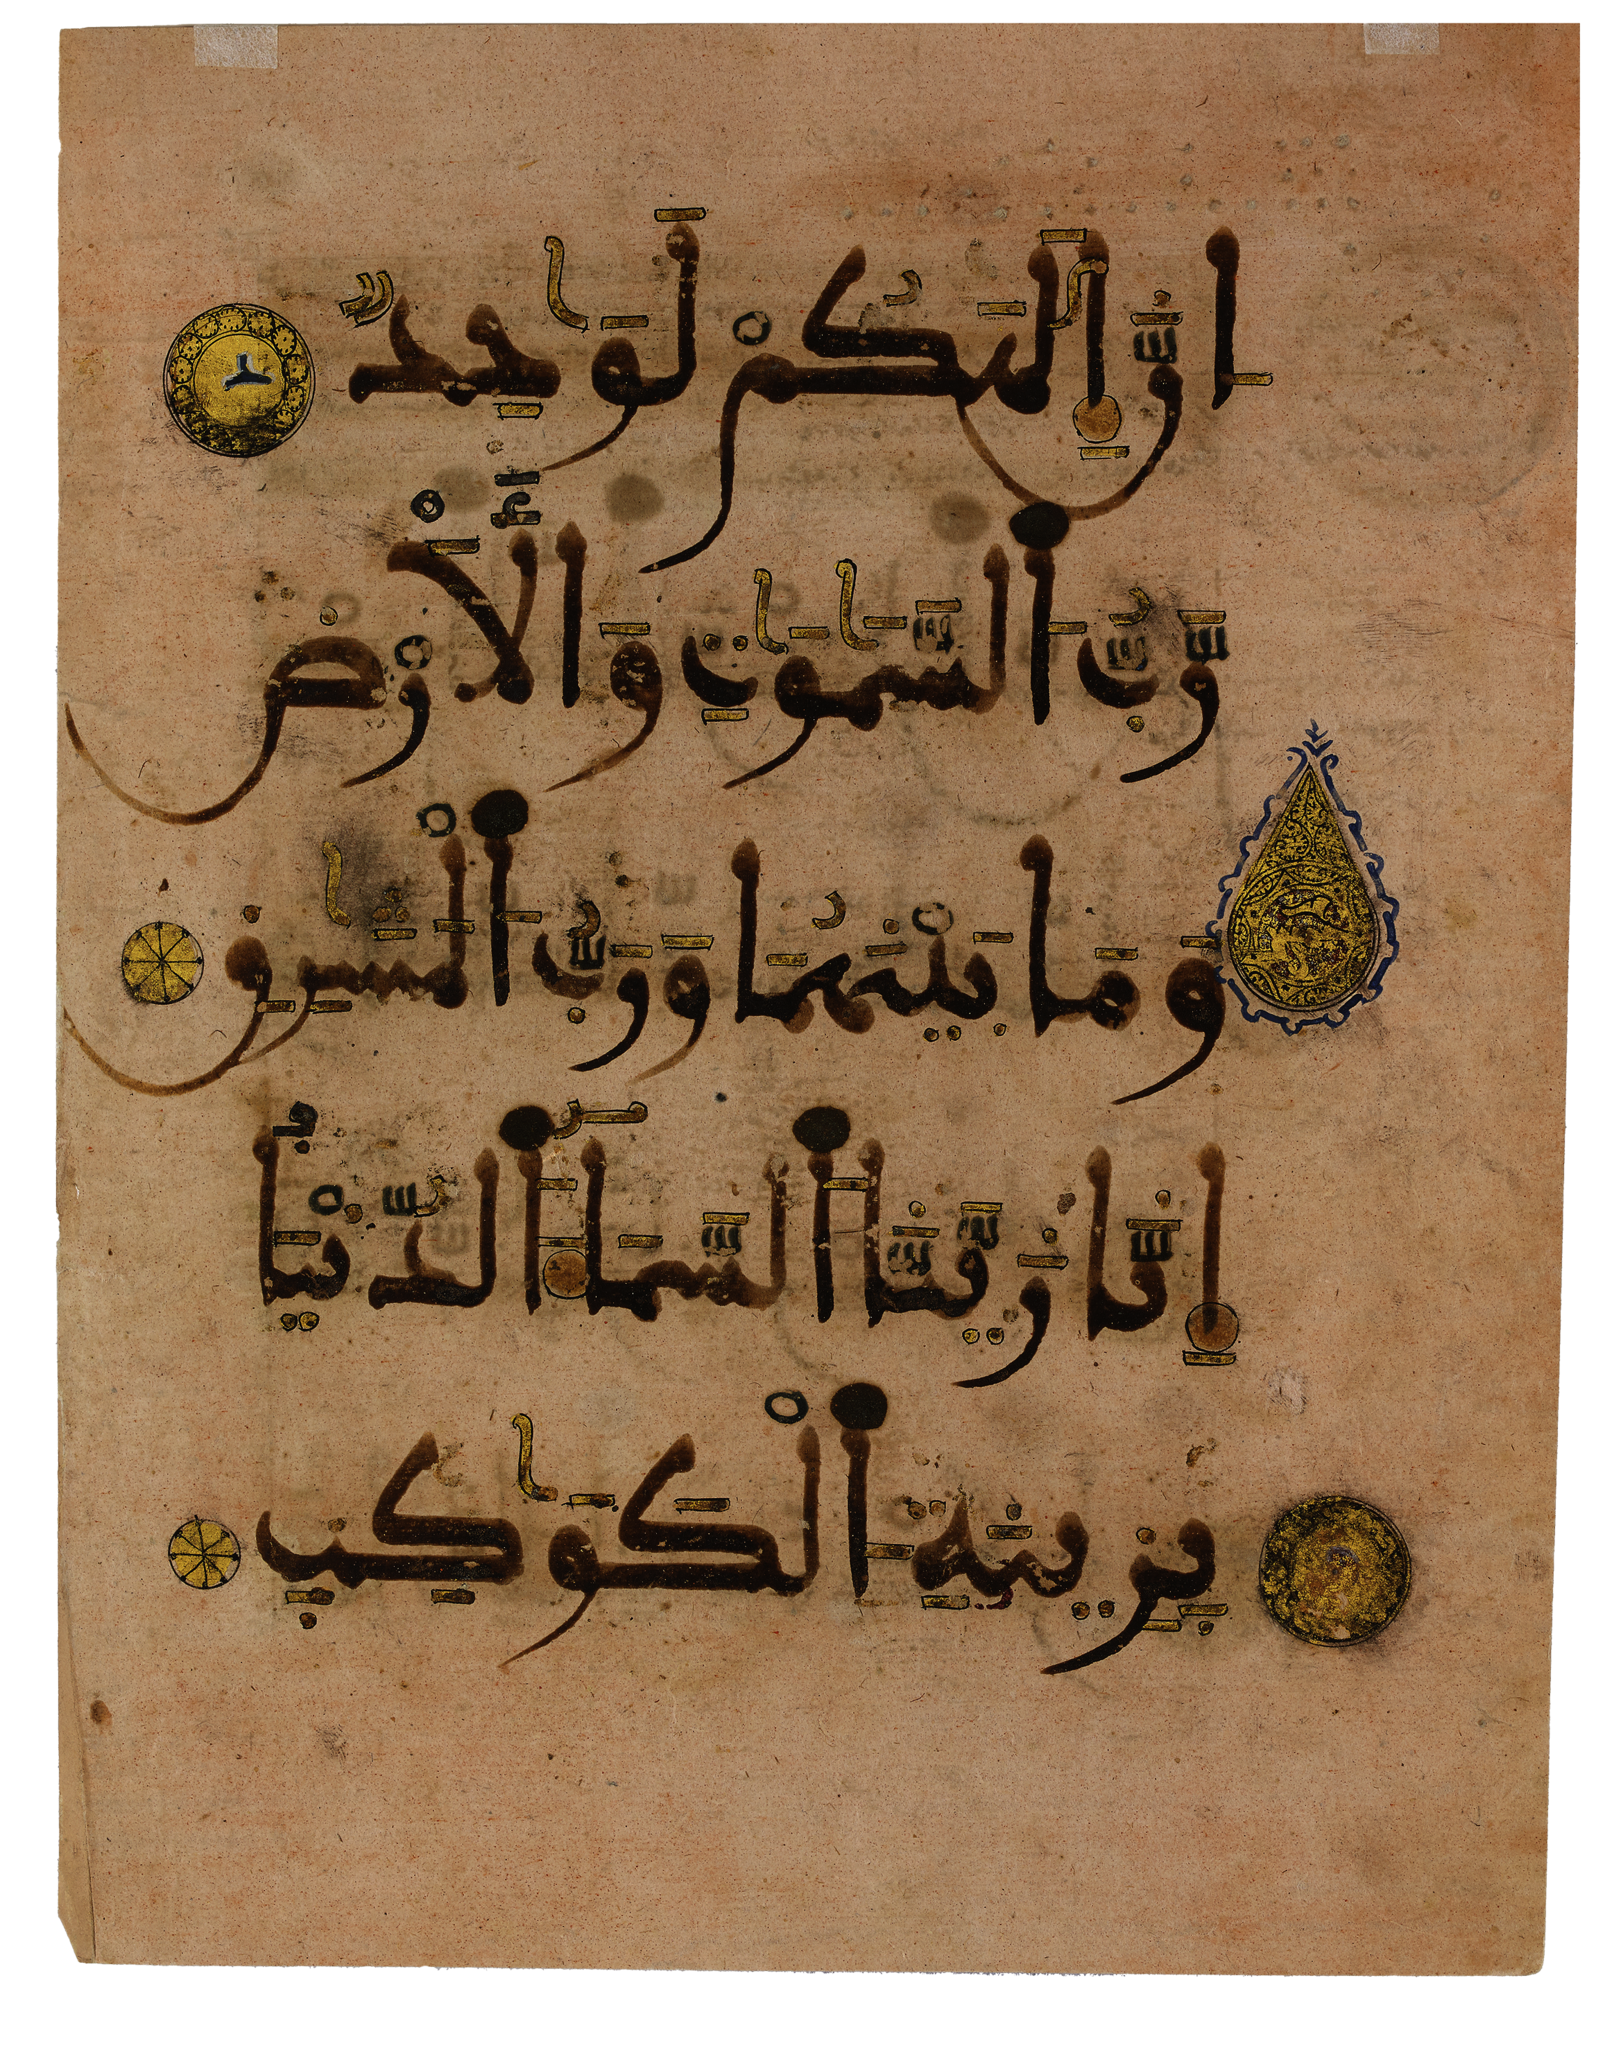 إِنَّ إِلَٰهَكُمْ لَوَٰحِدٌ
رَّبُّ السَّمَٰوَٰتِ وَالْأَرْضِ
وَمَا بَيْنَهُمَا وَرَبُّ الْمَشَٰرِقِ
إِنَّا زَيَّنَّا السَّمَاءَ الدُّنْيَا
بِزِينَةِ الْكَوَٰكِبِ